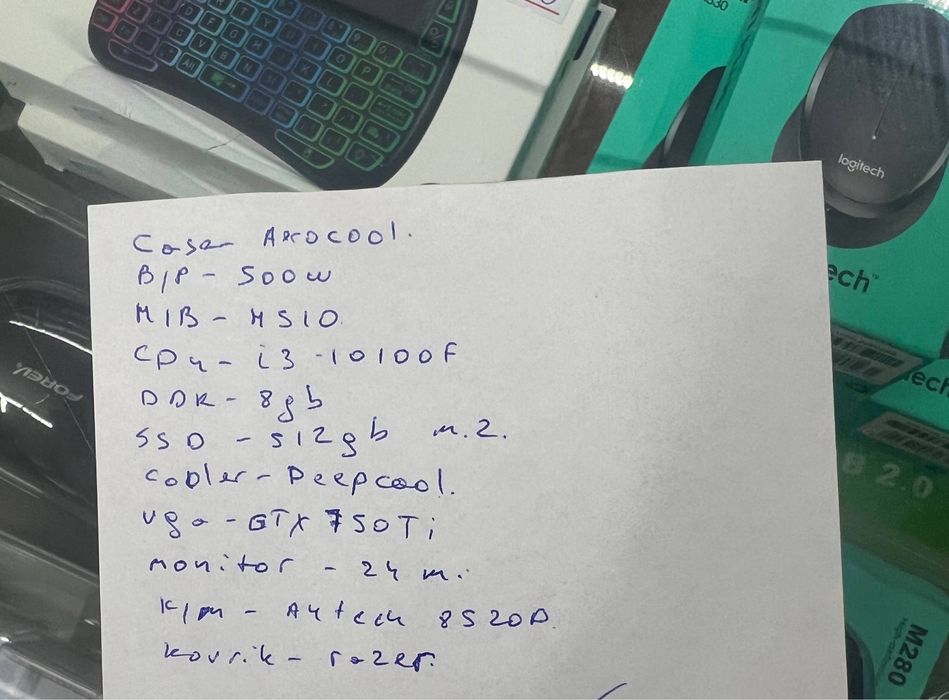 logitech
ech™
ech
2.0
M280
FOREV
Case Aerocool.
B/P - 500w
M/B - H510
CPu - i3 -10100F
DDR - 8gb
SSD - 512gb m.2.
Cooler - Deepcool.
vga - GTX 750Ti
monitor - 24 m.
K/m - A4tech 8520D.
kovrik - razer.